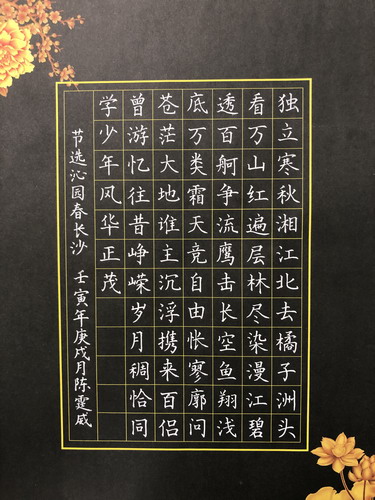 独立寒秋湘江北去橘子洲头
看万山红遍层林尽染漫江碧
透百舸争流鹰击长空鱼翔浅
底万类霜天竞自由怅寥廓问
苍茫大地谁主沉浮携来百侣
曾游忆往昔峥嵘岁月稠恰同
学少年风华正茂
节选沁园春长沙 壬寅年庚戌月陈霆威